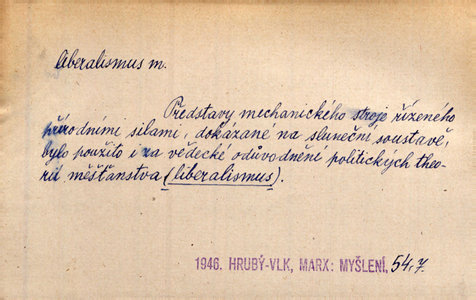 liberalismus m.
Představy mechanického stroje řízeného
přírodními silami, dokázané na sluneční soustavě,
bylo použito i za vědecké odůvodnění politických theo-
rií měšťanstva (liberalismus).
1946. HRUBÝ-VLK, MARX: MYŠLENÍ, 54,7.